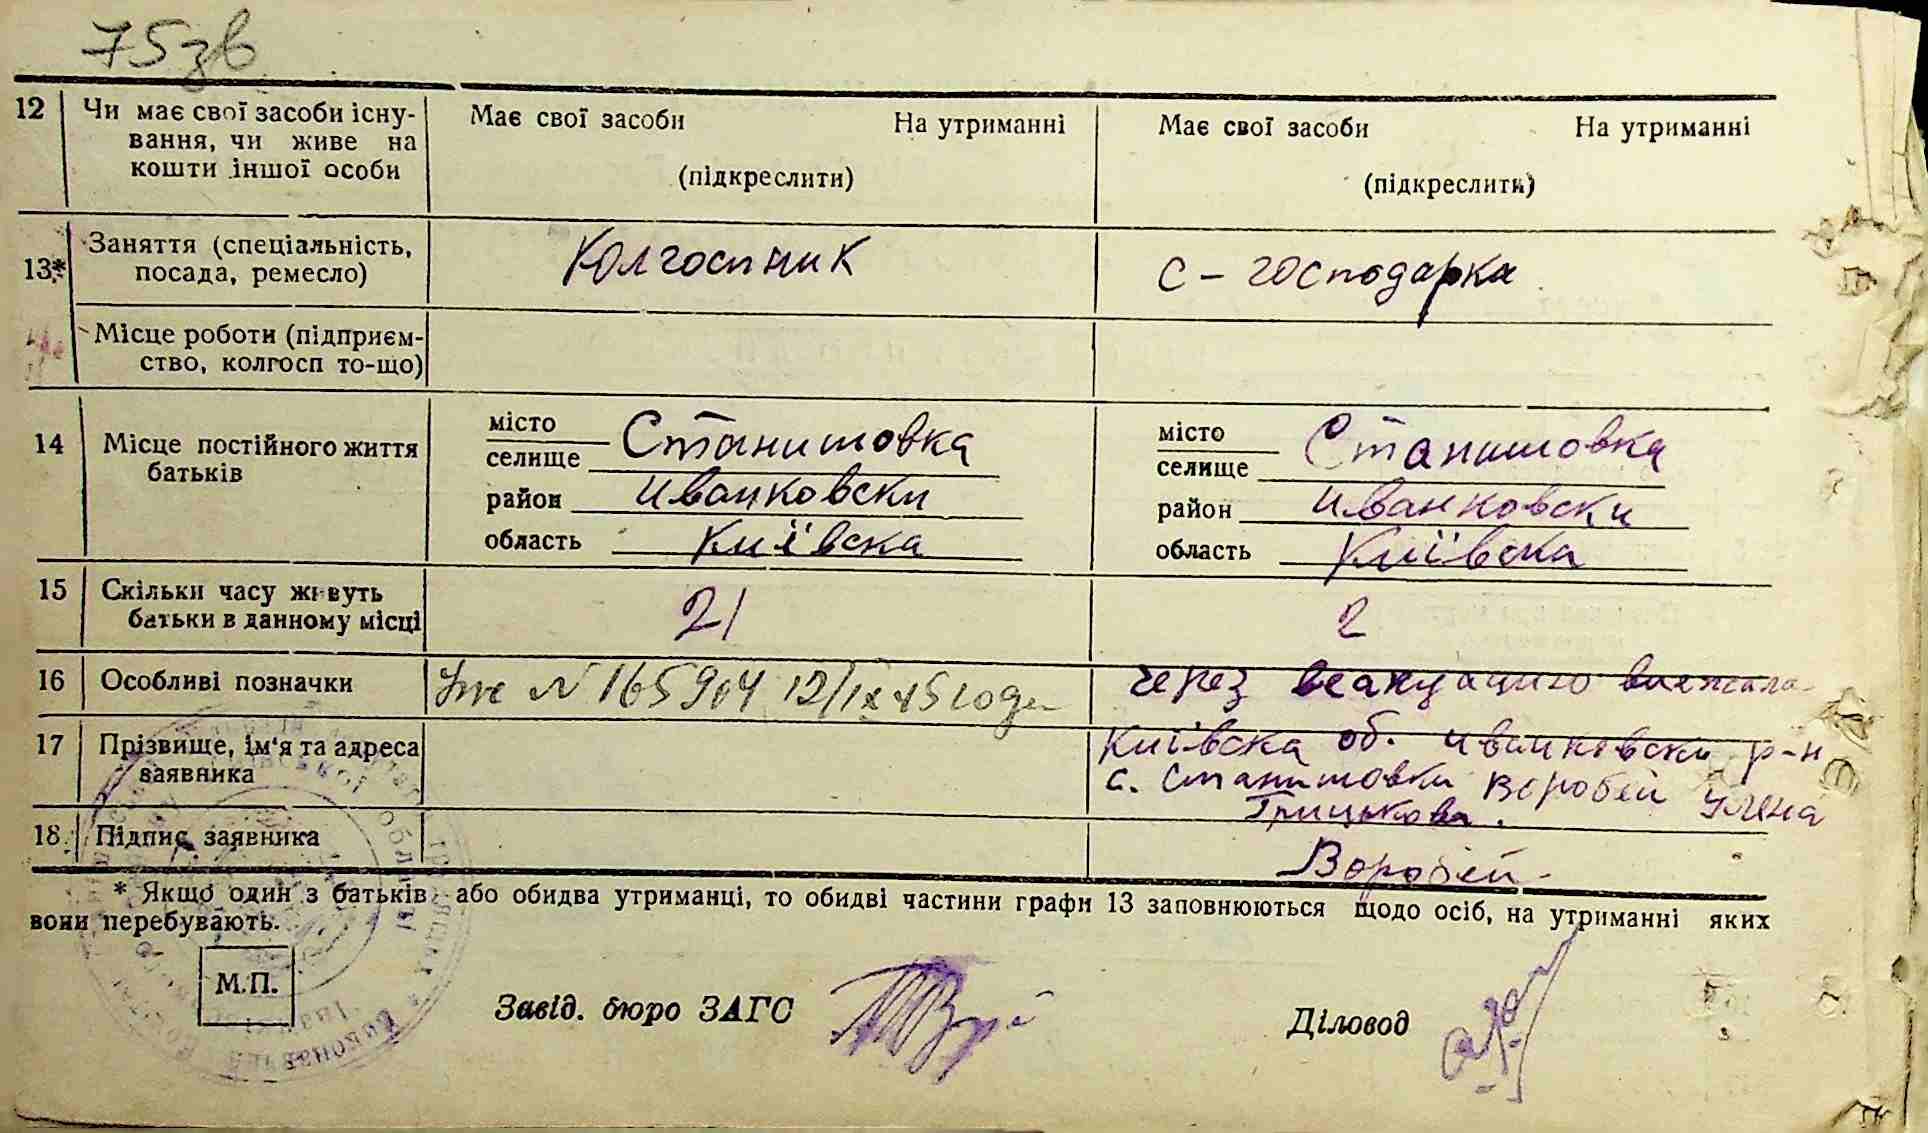 75зв
12 Чи має свої засоби існу-
вання, чи живе на
кошти іншої особи
Має свої засоби На утриманні
(підкреслити)
Має свої засоби На утриманні
(підкреслити)
13* Заняття (спеціальність,
посада, ремесло)
Колгоспник
с-господарка
Місце роботи (підприєм-
ство, колгосп то-що)
14 Місце постійного життя
батьків
місто
селище Станишовка
район иванковски
область Київска
місто
селище Станишовка
район иванковски
область Київска
15 Скільки часу живуть
батьки в данному місці
21
2
16 Особливі позначки
N 165904 12/IX 45 года
через веакуацию виежала
17 Прізвище, ім'я та адреса
заявника
Київска об. иванковски р-н
с. Станишовки Воробей Улена
Грицькова.
18. Підпис заявника
Воробей
* Якщо один з батьків або обидва утриманці, то обидві частини графи 13 заповнюються щодо осіб, на утриманні яких
вони перебувають.
М.П.
Завід. бюро ЗАГС
Діловод